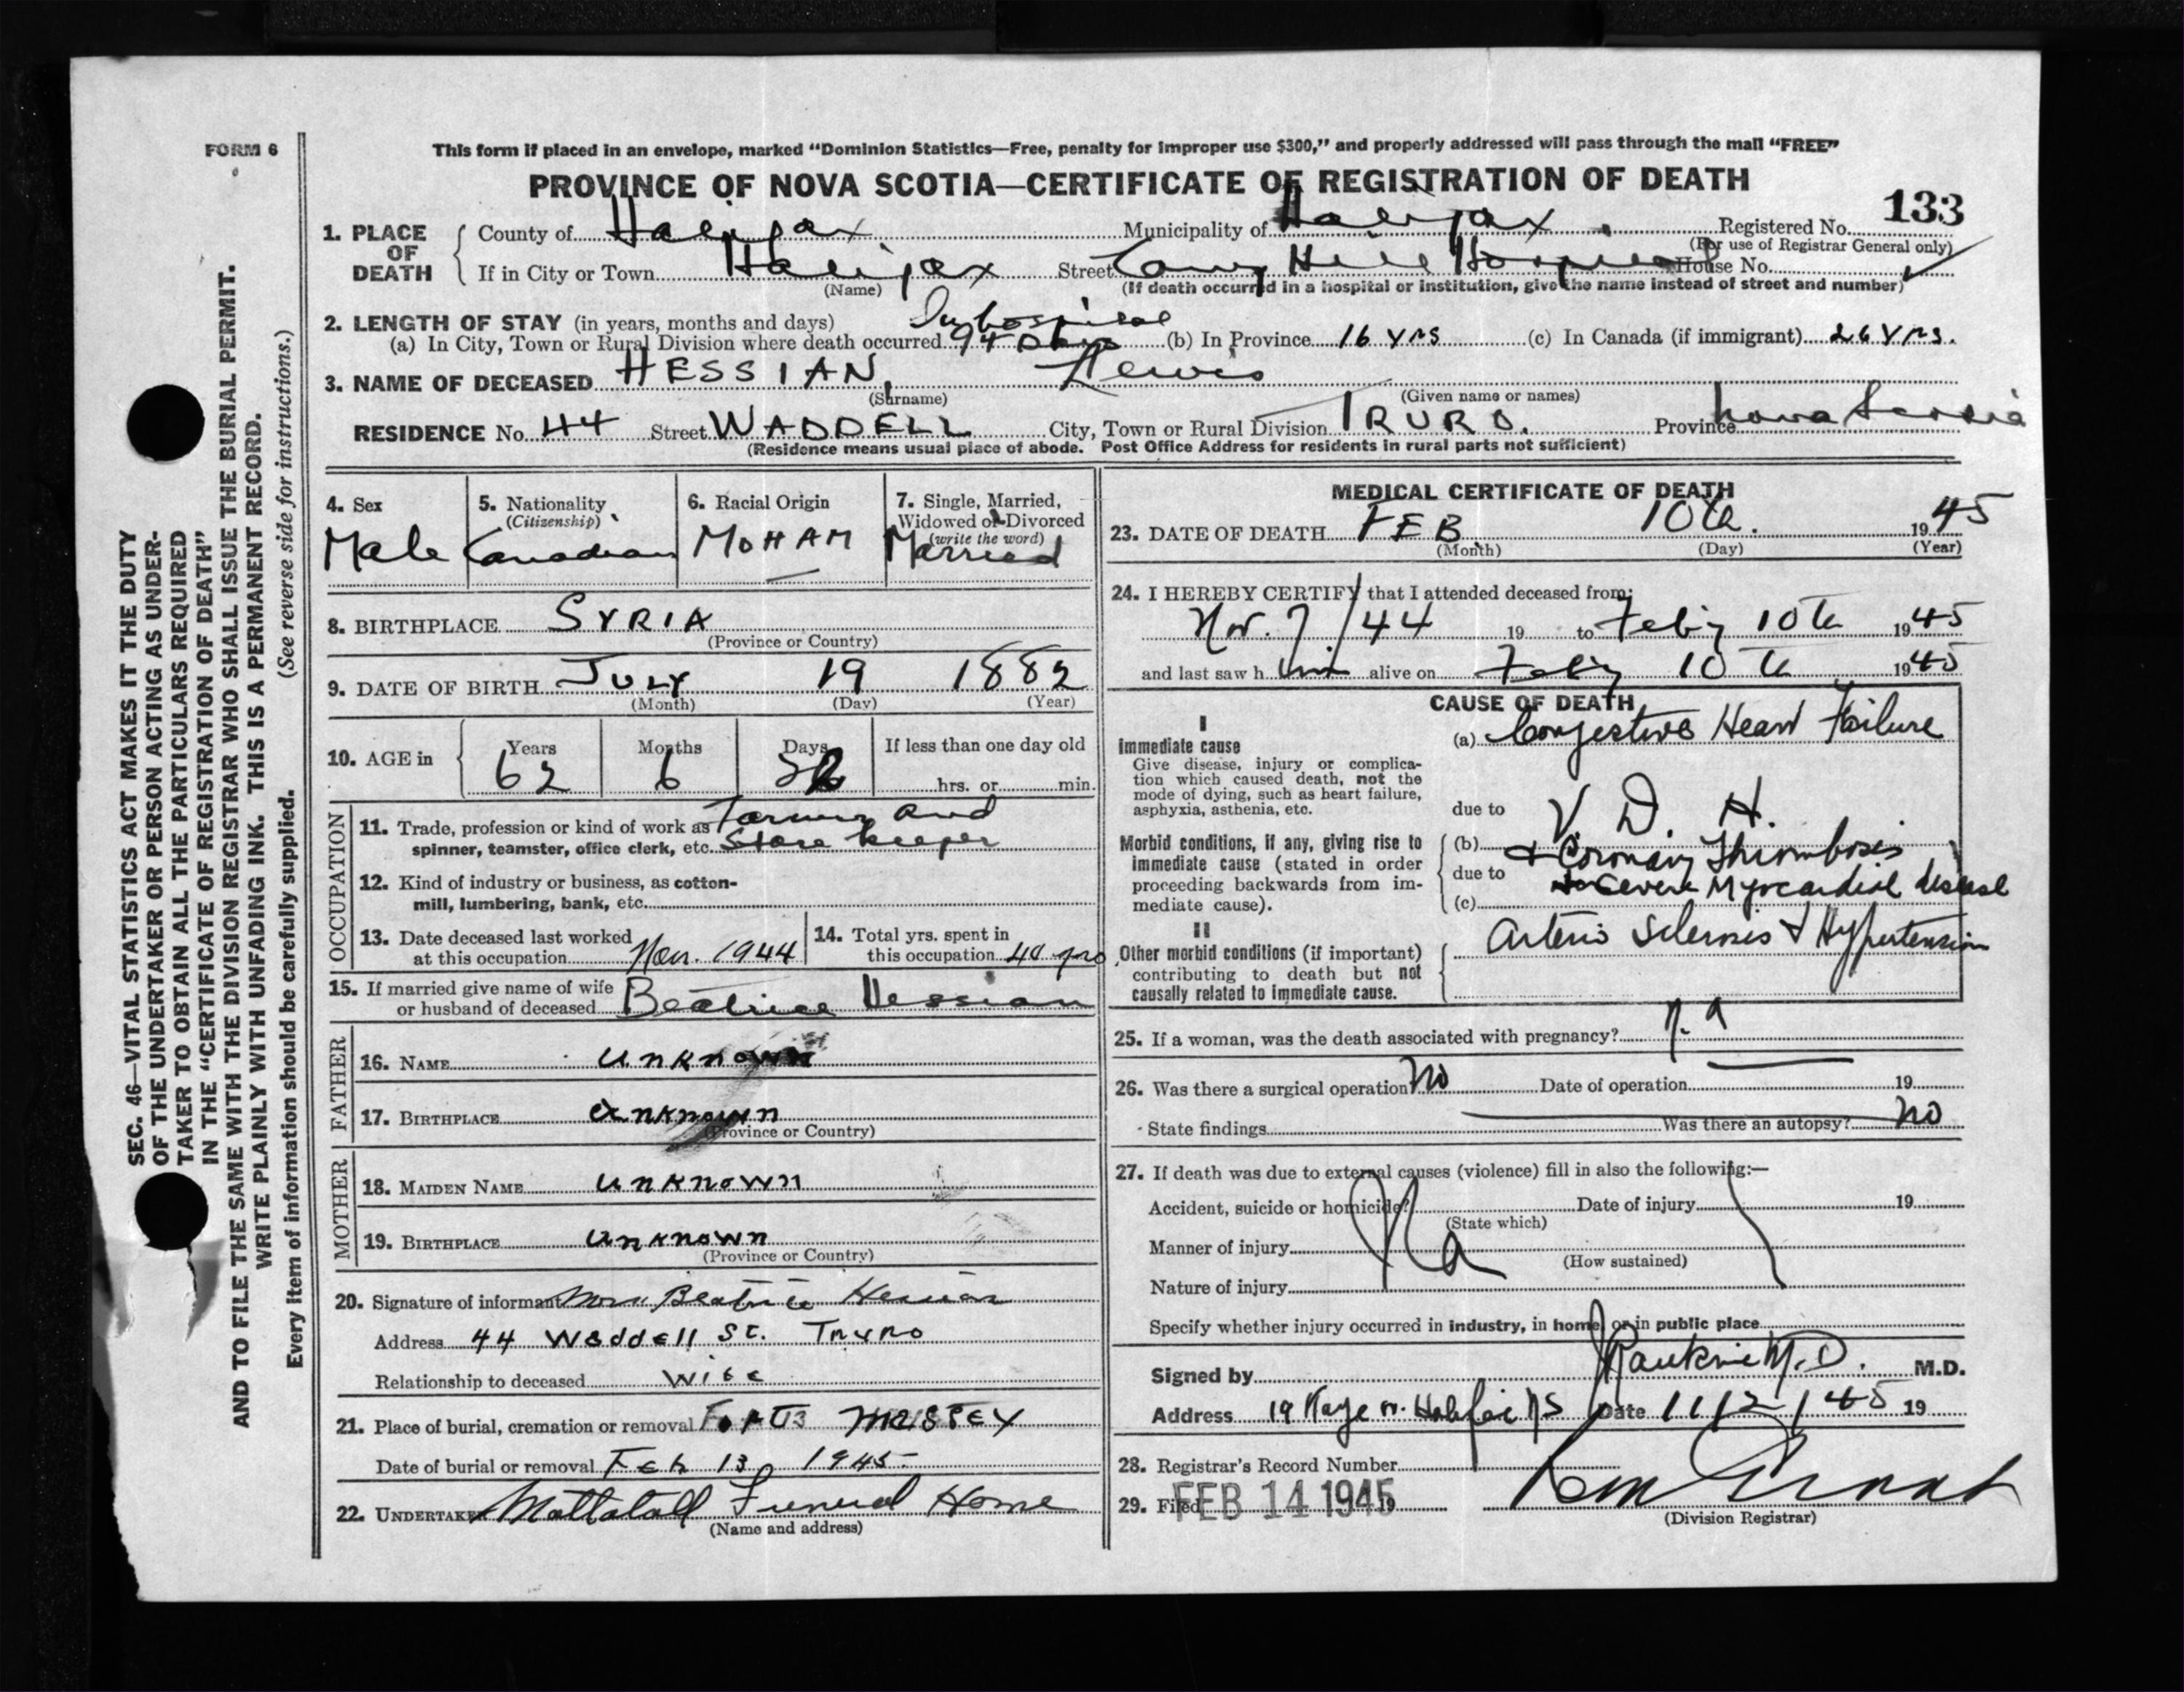 FORM 6
This form if placed in an envelope, marked “Dominion Statistics—Free, penalty for improper use $300,” and properly addressed will pass through the mail “FREE”
PROVINCE OF NOVA SCOTIA—CERTIFICATE OF REGISTRATION OF DEATH
133
1. PLACE OF DEATH County of Halifax Municipality of Halifax Registered No.
(For use of Registrar General only)
If in City or Town Halifax Street Camp Hill Hospital House No.
(Name) (If death occurred in a hospital or institution, give the name instead of street and number)
2. LENGTH OF STAY (in years, months and days) In hospital
(a) In City, Town or Rural Division where death occurred 94 Days (b) In Province 16 YRS (c) In Canada (if immigrant) 26 YRS.
3. NAME OF DECEASED HESSIAN, Lewis
(Surname) (Given name or names)
RESIDENCE No. 44 Street WADDELL City, Town or Rural Division TRURO. Province Nova Scotia
(Residence means usual place of abode. Post Office Address for residents in rural parts not sufficient)
4. Sex Male
5. Nationality (Citizenship) Canadian
6. Racial Origin MOHAM
7. Single, Married, Widowed or Divorced (write the word) Married
8. BIRTHPLACE SYRIA
(Province or Country)
9. DATE OF BIRTH JULY 19 1882
(Month) (Day) (Year)
10. AGE in Years 62 Months 6 Days If less than one day old
hrs. or min.
OCCUPATION
11. Trade, profession or kind of work as Farmer and
spinner, teamster, office clerk, etc. Store keeper
12. Kind of industry or business, as cotton-
mill, lumbering, bank, etc.
13. Date deceased last worked at this occupation Nov. 1944
14. Total yrs. spent in this occupation 40 yrs
15. If married give name of wife or husband of deceased Beatrice Hessian
FATHER
16. NAME unknown
17. BIRTHPLACE unknown
(Province or Country)
MOTHER
18. MAIDEN NAME unknown
19. BIRTHPLACE unknown
(Province or Country)
20. Signature of informant Mrs. Beatrice Hessian
Address 44 Waddell St. Truro
Relationship to deceased Wife
21. Place of burial, cremation or removal
Date of burial or removal Feb 13, 1945
22. UNDERTAKER Mattatall Funeral Home
(Name and address)
MEDICAL CERTIFICATE OF DEATH
23. DATE OF DEATH FEB 10th. 1945
(Month) (Day) (Year)
24. I HEREBY CERTIFY that I attended deceased from:
Nov. 7/44 19 to Feb'y 10th 1945
and last saw him alive on Feb'y 10th 1945
CAUSE OF DEATH
I
Immediate cause
Give disease, injury or complica-
tion which caused death, not the
mode of dying, such as heart failure,
asphyxia, asthenia, etc.
(a) Congestive Heart Failure
due to V. D. H.
Morbid conditions, if any, giving rise to
immediate cause (stated in order
proceeding backwards from im-
mediate cause).
(b) + Coronary Thrombosis
due to severe Myocardial disease
(c)
II
Other morbid conditions (if important)
contributing to death but not
causally related to immediate cause.
Arterio Sclerosis + Hypertension
25. If a woman, was the death associated with pregnancy? n.a
26. Was there a surgical operation No Date of operation 19
State findings Was there an autopsy? No
27. If death was due to external causes (violence) fill in also the following:—
Accident, suicide or homicide? Date of injury 19
(State which)
Na
Manner of injury
(How sustained)
Nature of injury
Specify whether injury occurred in industry, in home, or in public place
Signed by M.D. M.D.
Address 19 Halifax NS Date 11/2/45 19
28. Registrar's Record Number
29. Filed FEB 14 1945 19
(Division Registrar)
SEC. 46—VITAL STATISTICS ACT MAKES IT THE DUTY
OF THE UNDERTAKER OR PERSON ACTING AS UNDER-
TAKER TO OBTAIN ALL THE PARTICULARS REQUIRED
IN THE “CERTIFICATE OF REGISTRATION OF DEATH”
AND TO FILE THE SAME WITH THE DIVISION REGISTRAR WHO SHALL ISSUE THE BURIAL PERMIT.
WRITE PLAINLY WITH UNFADING INK. THIS IS A PERMANENT RECORD.
Every item of information should be carefully supplied. (See reverse side for instructions.)